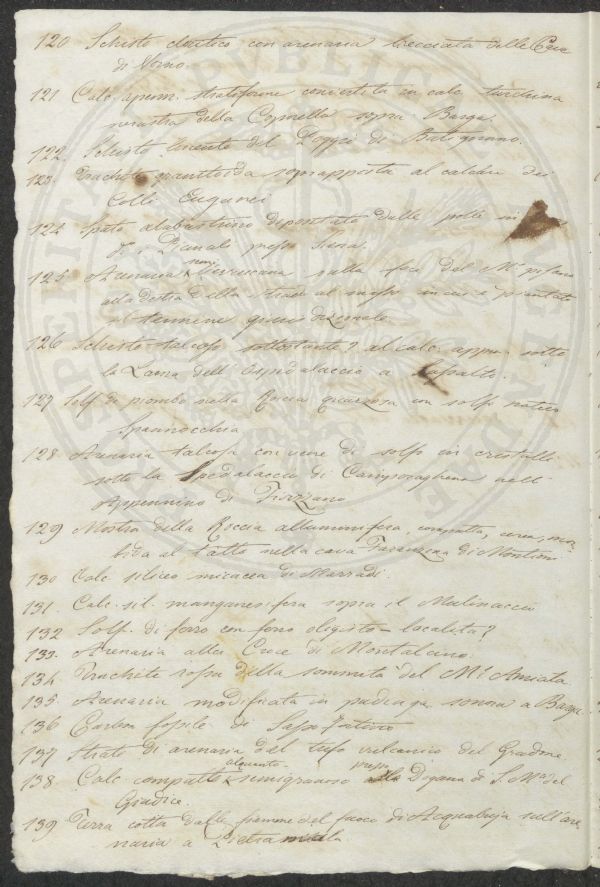 120 Schisto cloritico con arenaria brecciata delle
di Vorno.
121 Calc. appenn. stratiforme convertita in calc. turchina
nerastra della sopra Barga.
122. Schisto lucente del Poggio di
123. Trachite granitoida soprapposta al calcare dei
Colli Euganei
124 Spato alabastrino depositato dalle in
di presso Siena.
125 Arenaria Verrucana sulla foce del Mte pisano
alla destra della strada al in cui è piantato
il termine
126 Schisto talcoso sottostante? al calc. appen. sotto
la dell' Ospidalaccio a Sassalto.
127 Solf. di piombo nella Roccia quarzosa con solf. nativo
Spannocchia
128 Arenaria talcosa con vene di solfo in cristalli
sotto lo Spedalaccio di nell'
Appennino di Fivizzano
129 Mostra della Roccia alluminifera, compatta, cerea, mor-
bida al tatto nella cava di Montioni
130 Calc. siliceo micacea di Marradi.
131. Calc. sil. manganesifera sopra il Mulinaccio
132 Solf. di ferro con ferro oligisto – località?
133. Arenaria alla Croce di Montalcino.
134. Trachite rossa della sommità del Mte Amiata
135 Arenaria modificata in sonora a Barga
136 Carbon fossile di
137 Strato di arenaria del tufo vulcanico del
alquanto presso
138. Calc compatta semigranosa alla Dogana di S. Ma del
Giudice.
139 Terra cotta dalle fiamme del fuoco di Acquabuja sull'are-
naria a Pietramala